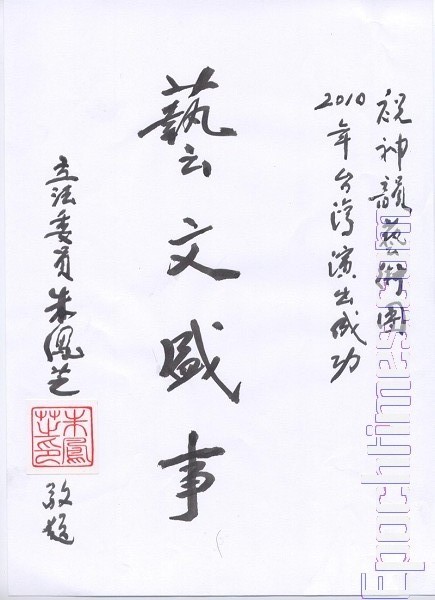 祝神韻藝術團
2010年台灣演出成功
藝文盛事
立法委員朱鳳芝
朱鳳
芝印
敬題
Epochtimes.com